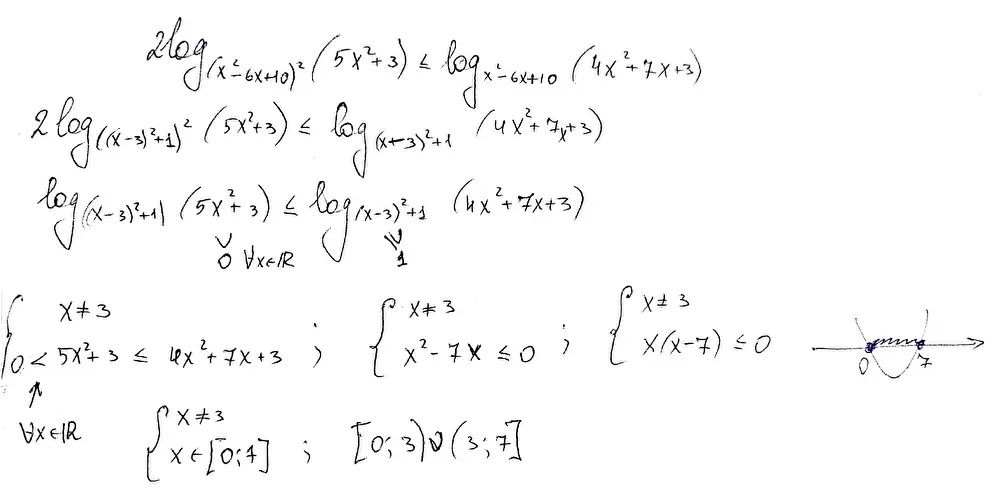 2log_{(x²-6x+10)²} (5x²+3) ≤ log_{x²-6x+10} (4x²+7x+3)
2log_{((x-3)²+1)²} (5x²+3) ≤ log_{(x-3)²+1} (4x²+7x+3)
log_{|(x-3)²+1|} (5x²+3) ≤ log_{(x-3)²+1} (4x²+7x+3)
∨ ∨
0 ∀x∈ℝ 1
{ x≠3 ; { x≠3 ; { x≠3
0 < 5x²+3 ≤ 4x²+7x+3 x²-7x ≤ 0 x(x-7) ≤ 0 0 7
↑
∀x∈ℝ
{ x≠3
x∈[0;7] ; [0;3)∪(3;7]